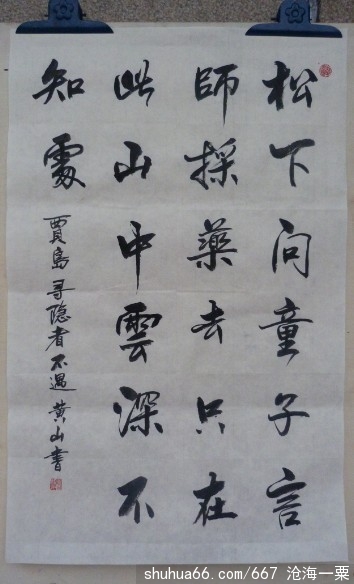 松下问童子言
師採藥去只在
此山中雲深不
知處
賈島寻隐者不遇 黄山書
shuhua66.com/667 沧海一粟